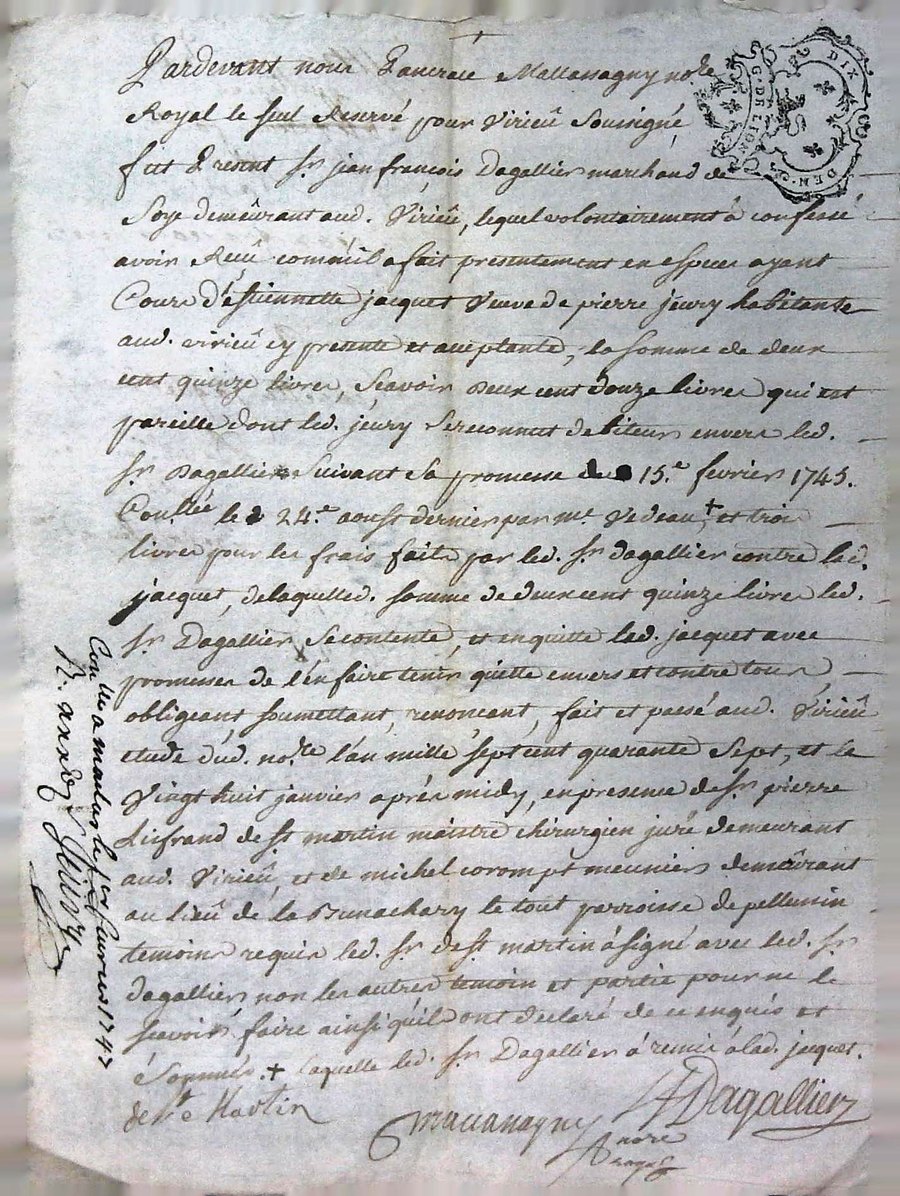 Pardevant nous Pancrace Mallanagny no.re
Royal le seul Reservé pour Virieû Soussigné
fut present Sr. jean françois Dagallier marchand de
Soye demeûrant aud. Virieû, lequel volontairement à confessé
avoir Reçû comm'il a fait presentement en especes ayant
Cours d'éstiennette jacquet Veuve de pierre jeury habitante
aud. virieû cy presente et acceptante, la somme de deux
cent quinze livres, Scavoir Deux cent douze livres qui est
pareille dont led. jeury Se reconnut debiteur envers led.
Sr. Dagallier Suivant Sa promesse du 15.e fevrier 1745.
Con.llée le 24.e aoust dernier par me. Vedeau + et trois
livres pour les frais faits par led. Sr. dagallier contre lad.
jacquet, de laquelled. somme de deux cent quinze livres led.
Sr. Dagallier Se contente, et en quitte lad. jacquet avec
promesses de l'en faire tenir quitte envers et contre tous
obligeant, soumettant, renoncant, fait et passé aud. Virieû
etude dud. no.re l'an mille sept cent quarante Sept, et le
Vingt huit janvier après midy, en presence de Sr. pierre
de st martin maistre chirurgien juré demeurant
aud. Virieû, et de michel corompt meunier demeûrant
au lieû de la le tout parroisse de pellussin
temoins requis led. Sr. de st. martin à signé avec led. Sr.
dagallier non les autres temoin et partie pour ne le
scavoir faire ainsi qu'ils ont declaré de ce enquis et
Sommés. + laquelle led. Sr. Dagallier à remis a lad. jacquet.
de St Martin
Mallanagny
JF Dagallier
no.re
Royal
Con.llé a le 1er fevrier 1747
R.
DIX DEN.
G. DE LION